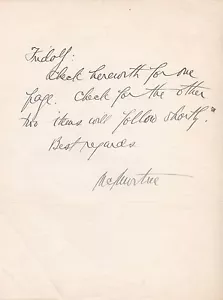 Fridolf:
Check herewith for one
page. Check for the other
two items will follow shortly."
Best regards
McMurtrie